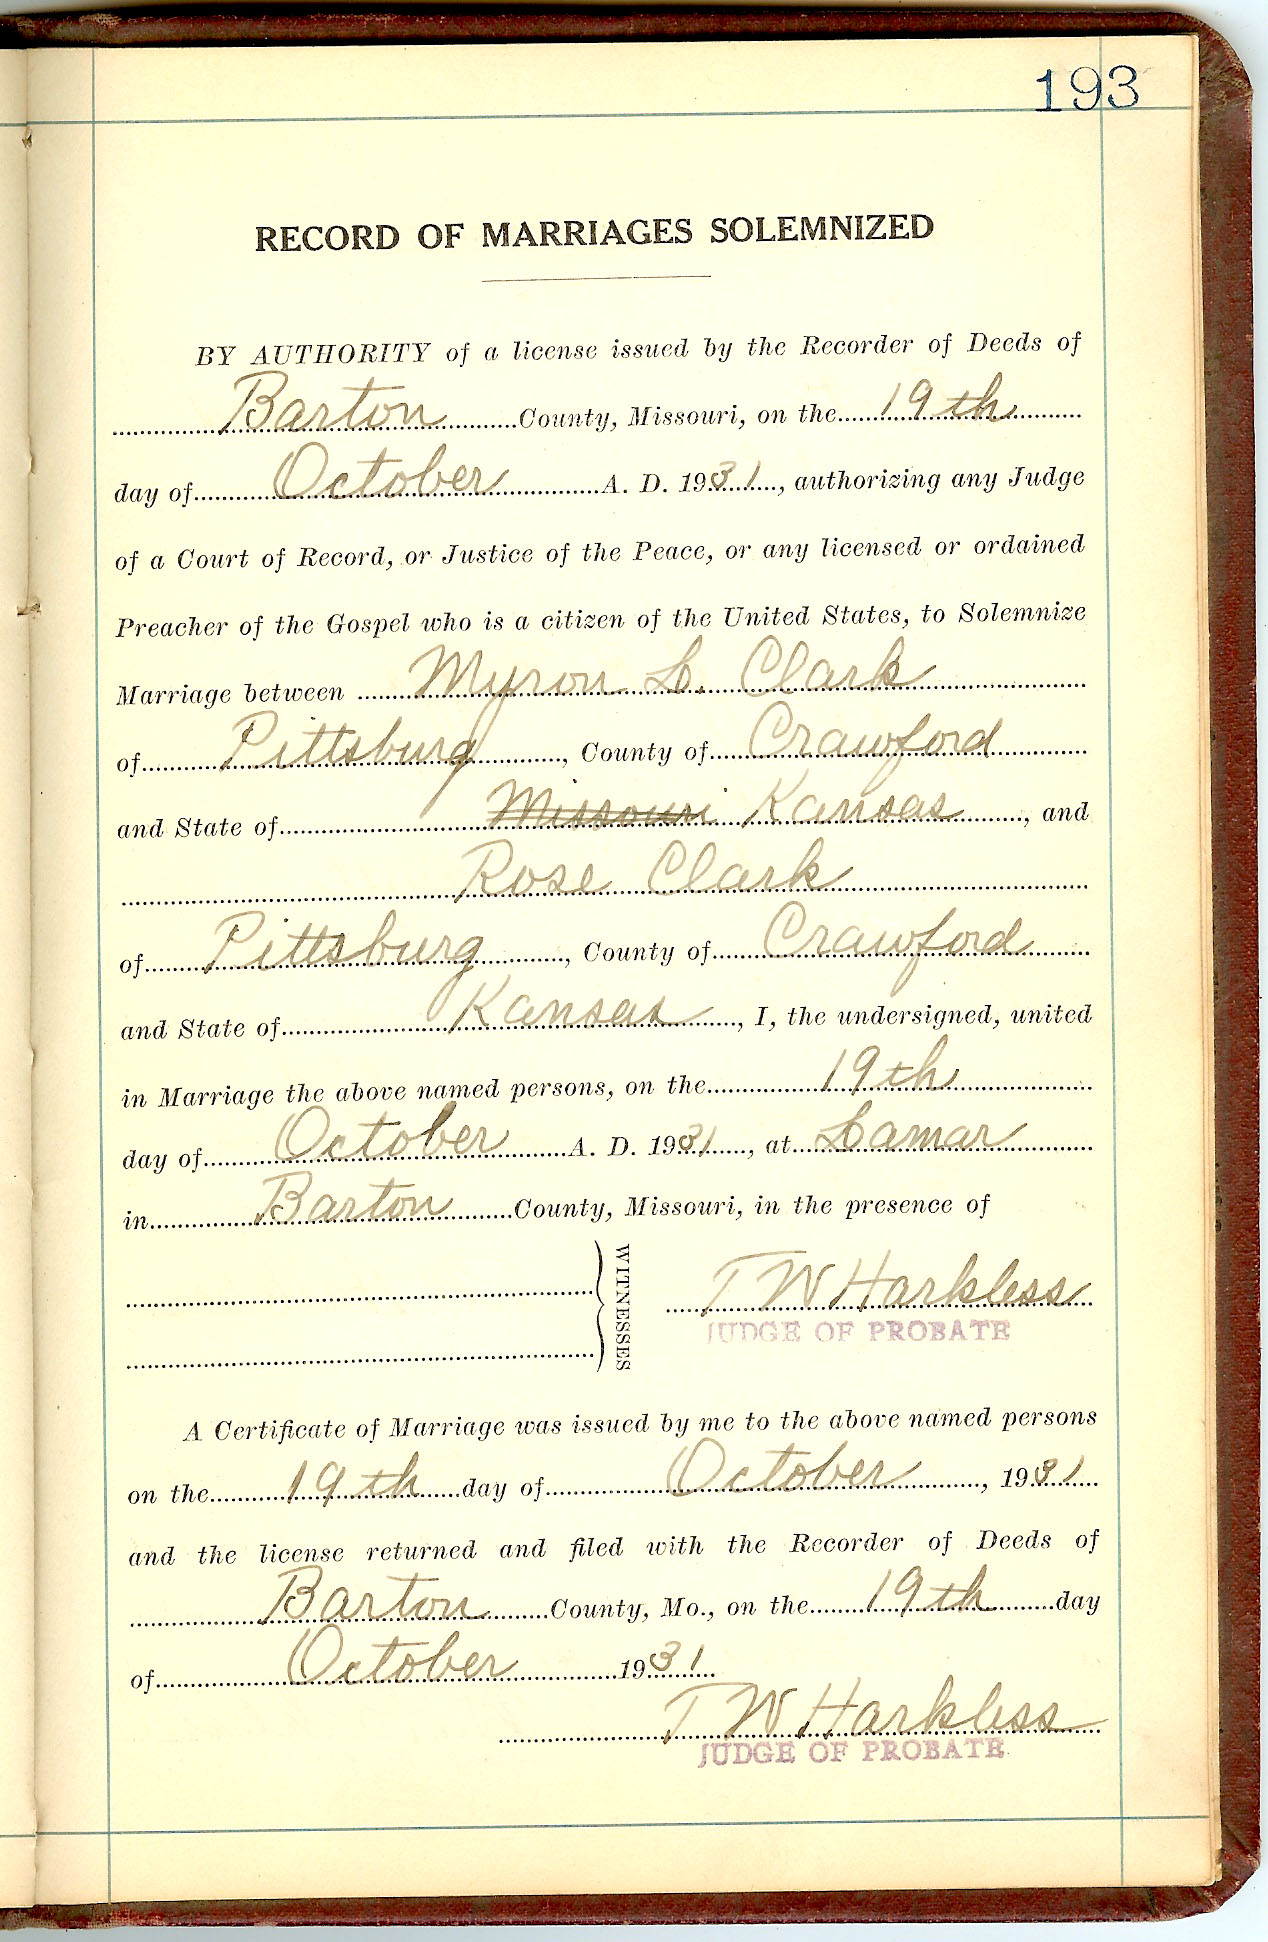 193
RECORD OF MARRIAGES SOLEMNIZED
BY AUTHORITY of a license issued by the Recorder of Deeds of
Barton County, Missouri, on the 19th
day of October A. D. 1931, authorizing any Judge
of a Court of Record, or Justice of the Peace, or any licensed or ordained
Preacher of the Gospel who is a citizen of the United States, to Solemnize
Marriage between Myron L. Clark
of Pittsburg, County of Crawford
and State of Missouri Kansas, and
Rose Clark
of Pittsburg, County of Crawford
and State of Kansas, I, the undersigned, united
in Marriage the above named persons, on the 19th
day of October A. D. 1931, at Lamar
in Barton County, Missouri, in the presence of
WITNESSES
T W Harkless
JUDGE OF PROBATE
A Certificate of Marriage was issued by me to the above named persons
on the 19th day of October, 1931
and the license returned and filed with the Recorder of Deeds of
Barton County, Mo., on the 19th day
of October 1931
T W Harkless
JUDGE OF PROBATE